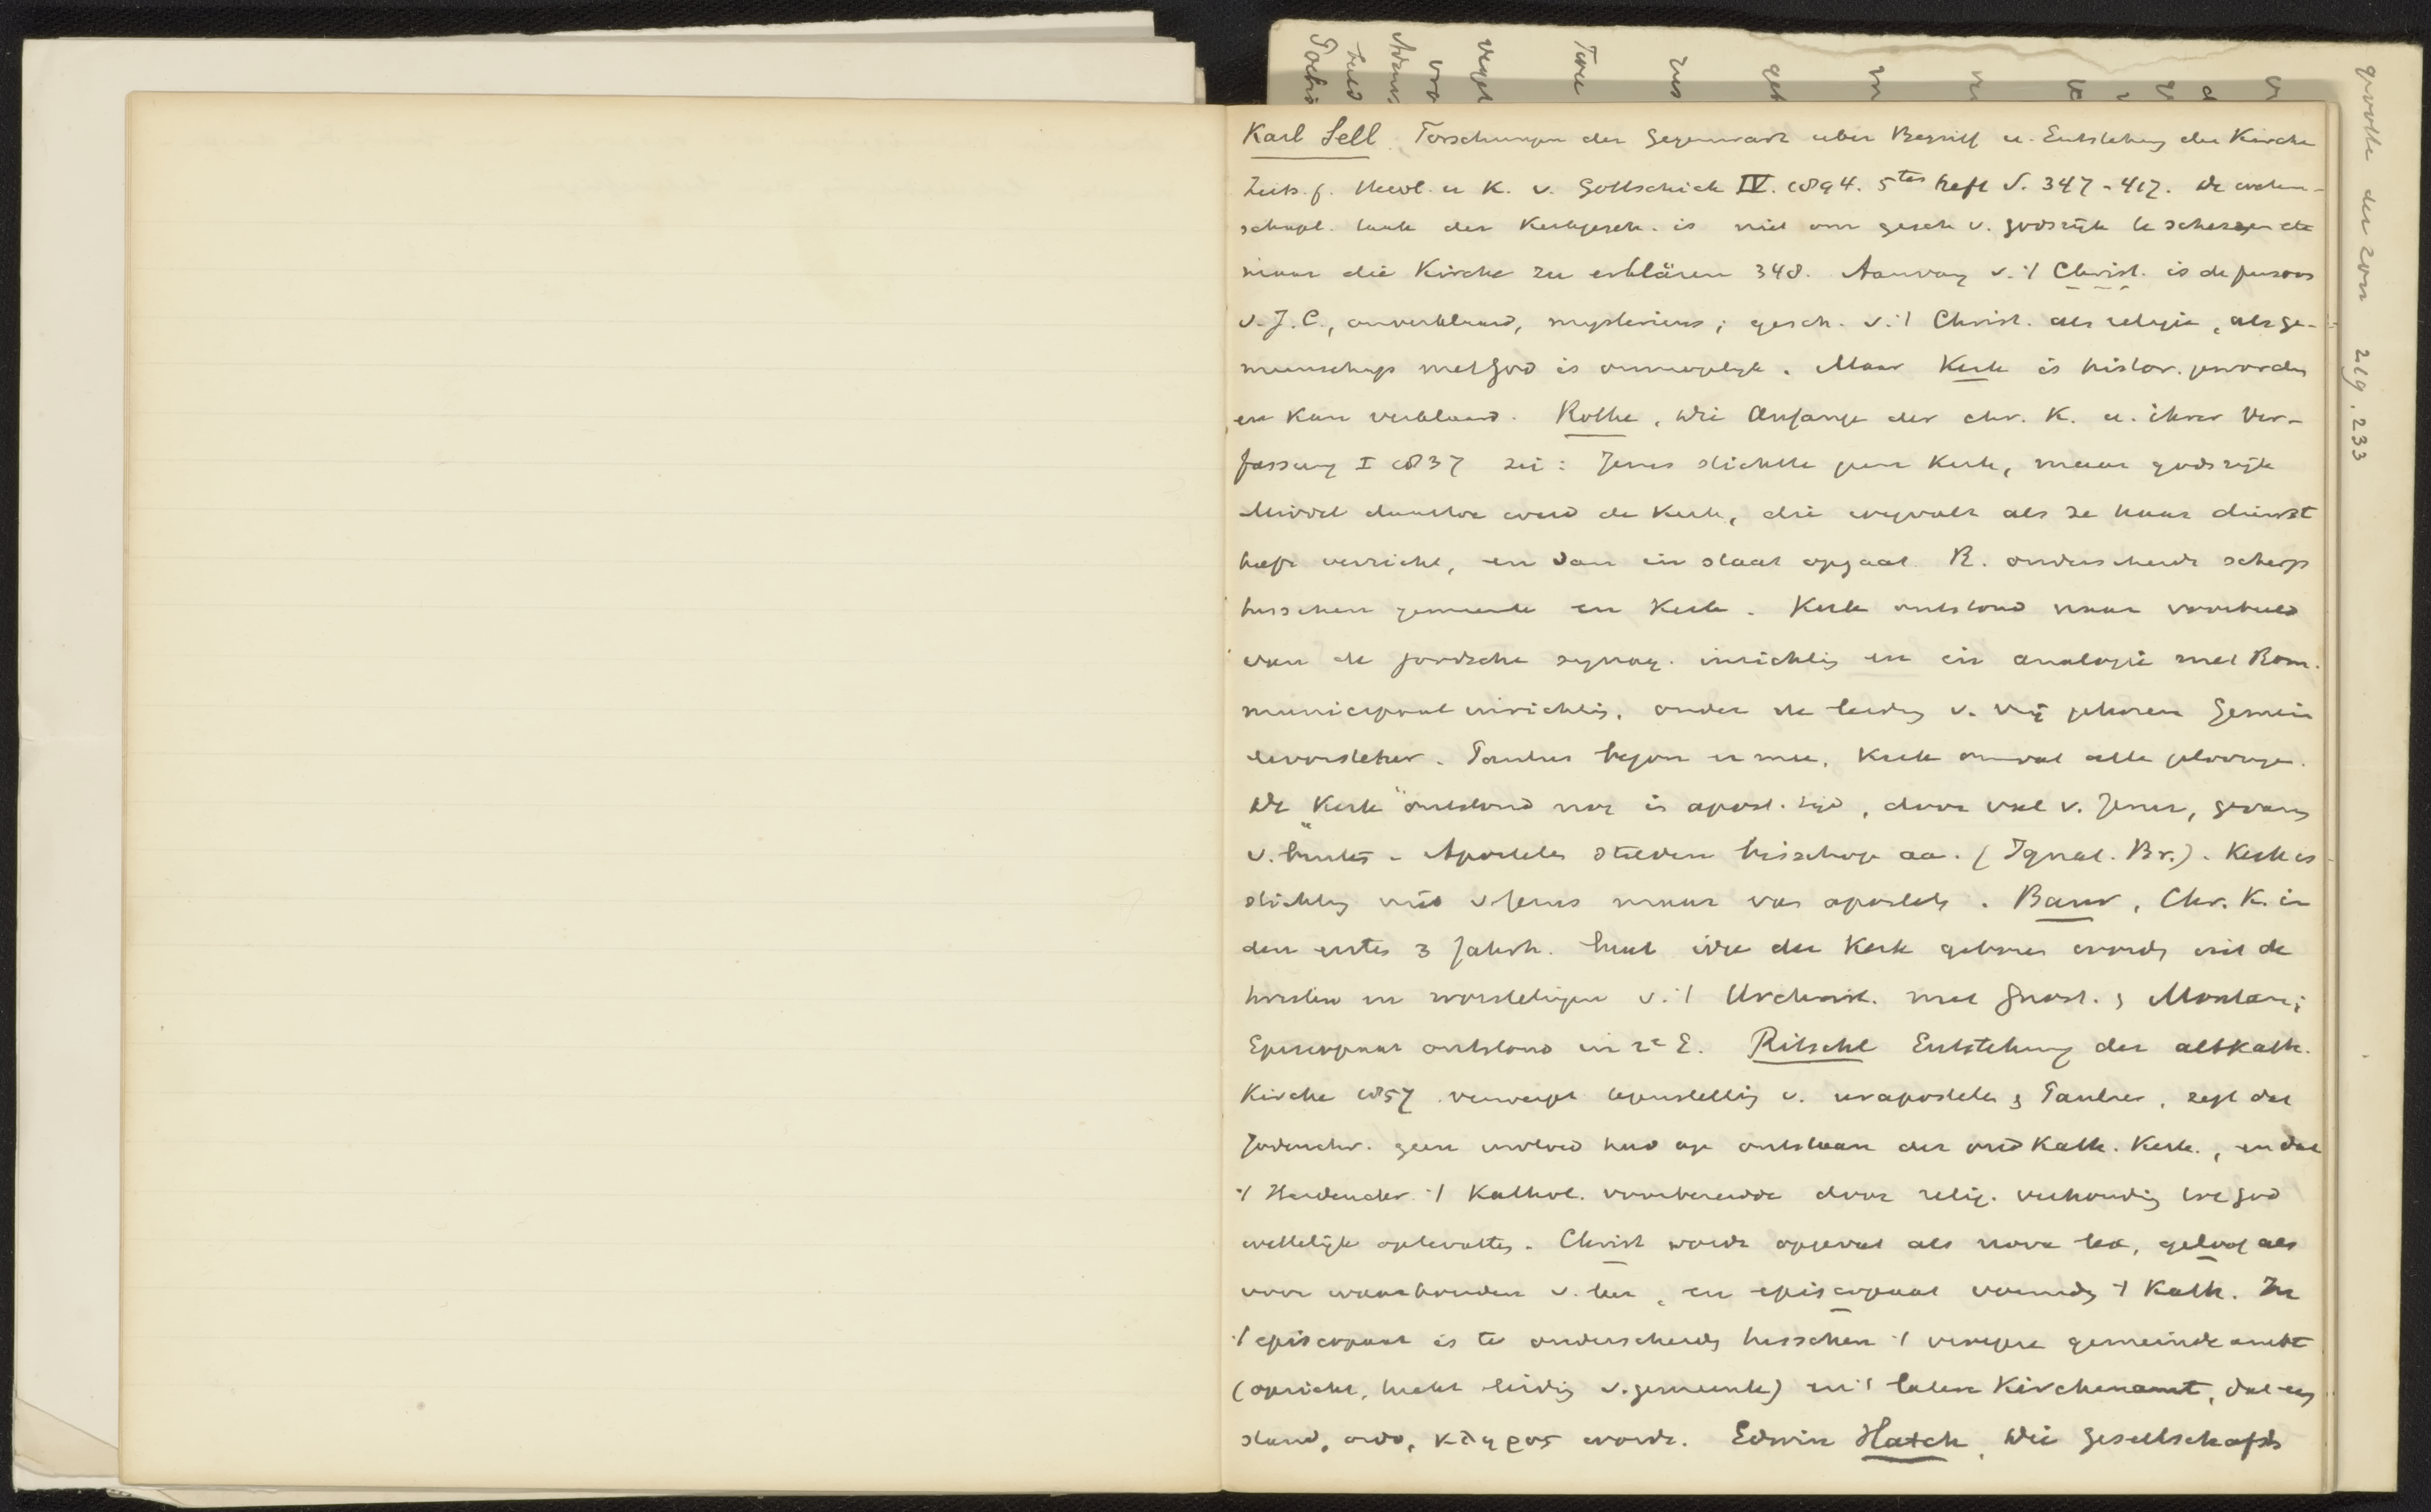 Karl Sell. Forschungen der Gegenwart über Begriff u. Entstehung der Kirche
Zeits. f. Theol. u K. v. Gottschick IV. 1894. 5tes heft S. 347-417. De weten-
schapl. taak der Kerkgesch. is niet om gesch v. godsrijk te
maar die Kirche zu erklären 348. Aanvang v. 't Christ. is de persoon
v. J. C., onverklaard, mysterieus; gesch. v. 't Christ. als religie, als ge-
meenschap met God is onmogelijk. Maar Kerk is histor. geworden
en kan verklaard. Rothe, Die Anfänge der chr. K. u. ihrer Ver-
fassung I 1837 zei: Jezus stichtte geen Kerk, maar godsrijk
Middel daartoe werd de Kerk, die wegvalt als ze haar dienst
heeft verricht, en dan in staat opgaat. R. onderscheidt scherp
tusschen gemeente en Kerk. Kerk ontstond naar voorbeeld
van de joodsche synag. inrichting en in analogie met Rom.
municipaal inrichting, onder de leiding v. vrij gekozen Gemein
devorsteher. Paulus begon er mee, Kerk omvat alle geloovigen.
De "Kerk" ontstond nog in apost. tijd, door val v. Jeruz, gevang
v. Apostelen stelden bisschop aa. (Ignat. Br.). Kerk is
stichting niet v Jezus maar van apostels. Baur, Chr. K. in
den ersten 3 Jahrh. laat idee der Kerk geboren worden uit de
en worstelingen v. 't Urchrist. met Gnost. & Montan;
Episcopaat ontstond in 2e E. Ritschl Entstehung der altkath.
Kirche 1857 verwerpt tegenstelling v. urapostelen & Paulus, zegt dat
Jodenchr. geen invloed had op ontstaan der oud Kath. Kerk, en dat
't Heidenchr. 't Kathol. voorbereidde door relig. verhouding tot God
wettelijk optevatten. Christ wordt opgevat als nova lex, geloof als
voor waarhouden v. leer, en episcopaat voendg 't Kath. In
't episcopaat is te onderscheiden tusschen 't vroegere gemeinde ambt
(opzicht, leiding v. gemeente) en 't latere Kirchenamt, dat een
stand, ordo, κληρος wordt. Edwin Hatch, Die Gesellschafts
grootte der zon 219. 233